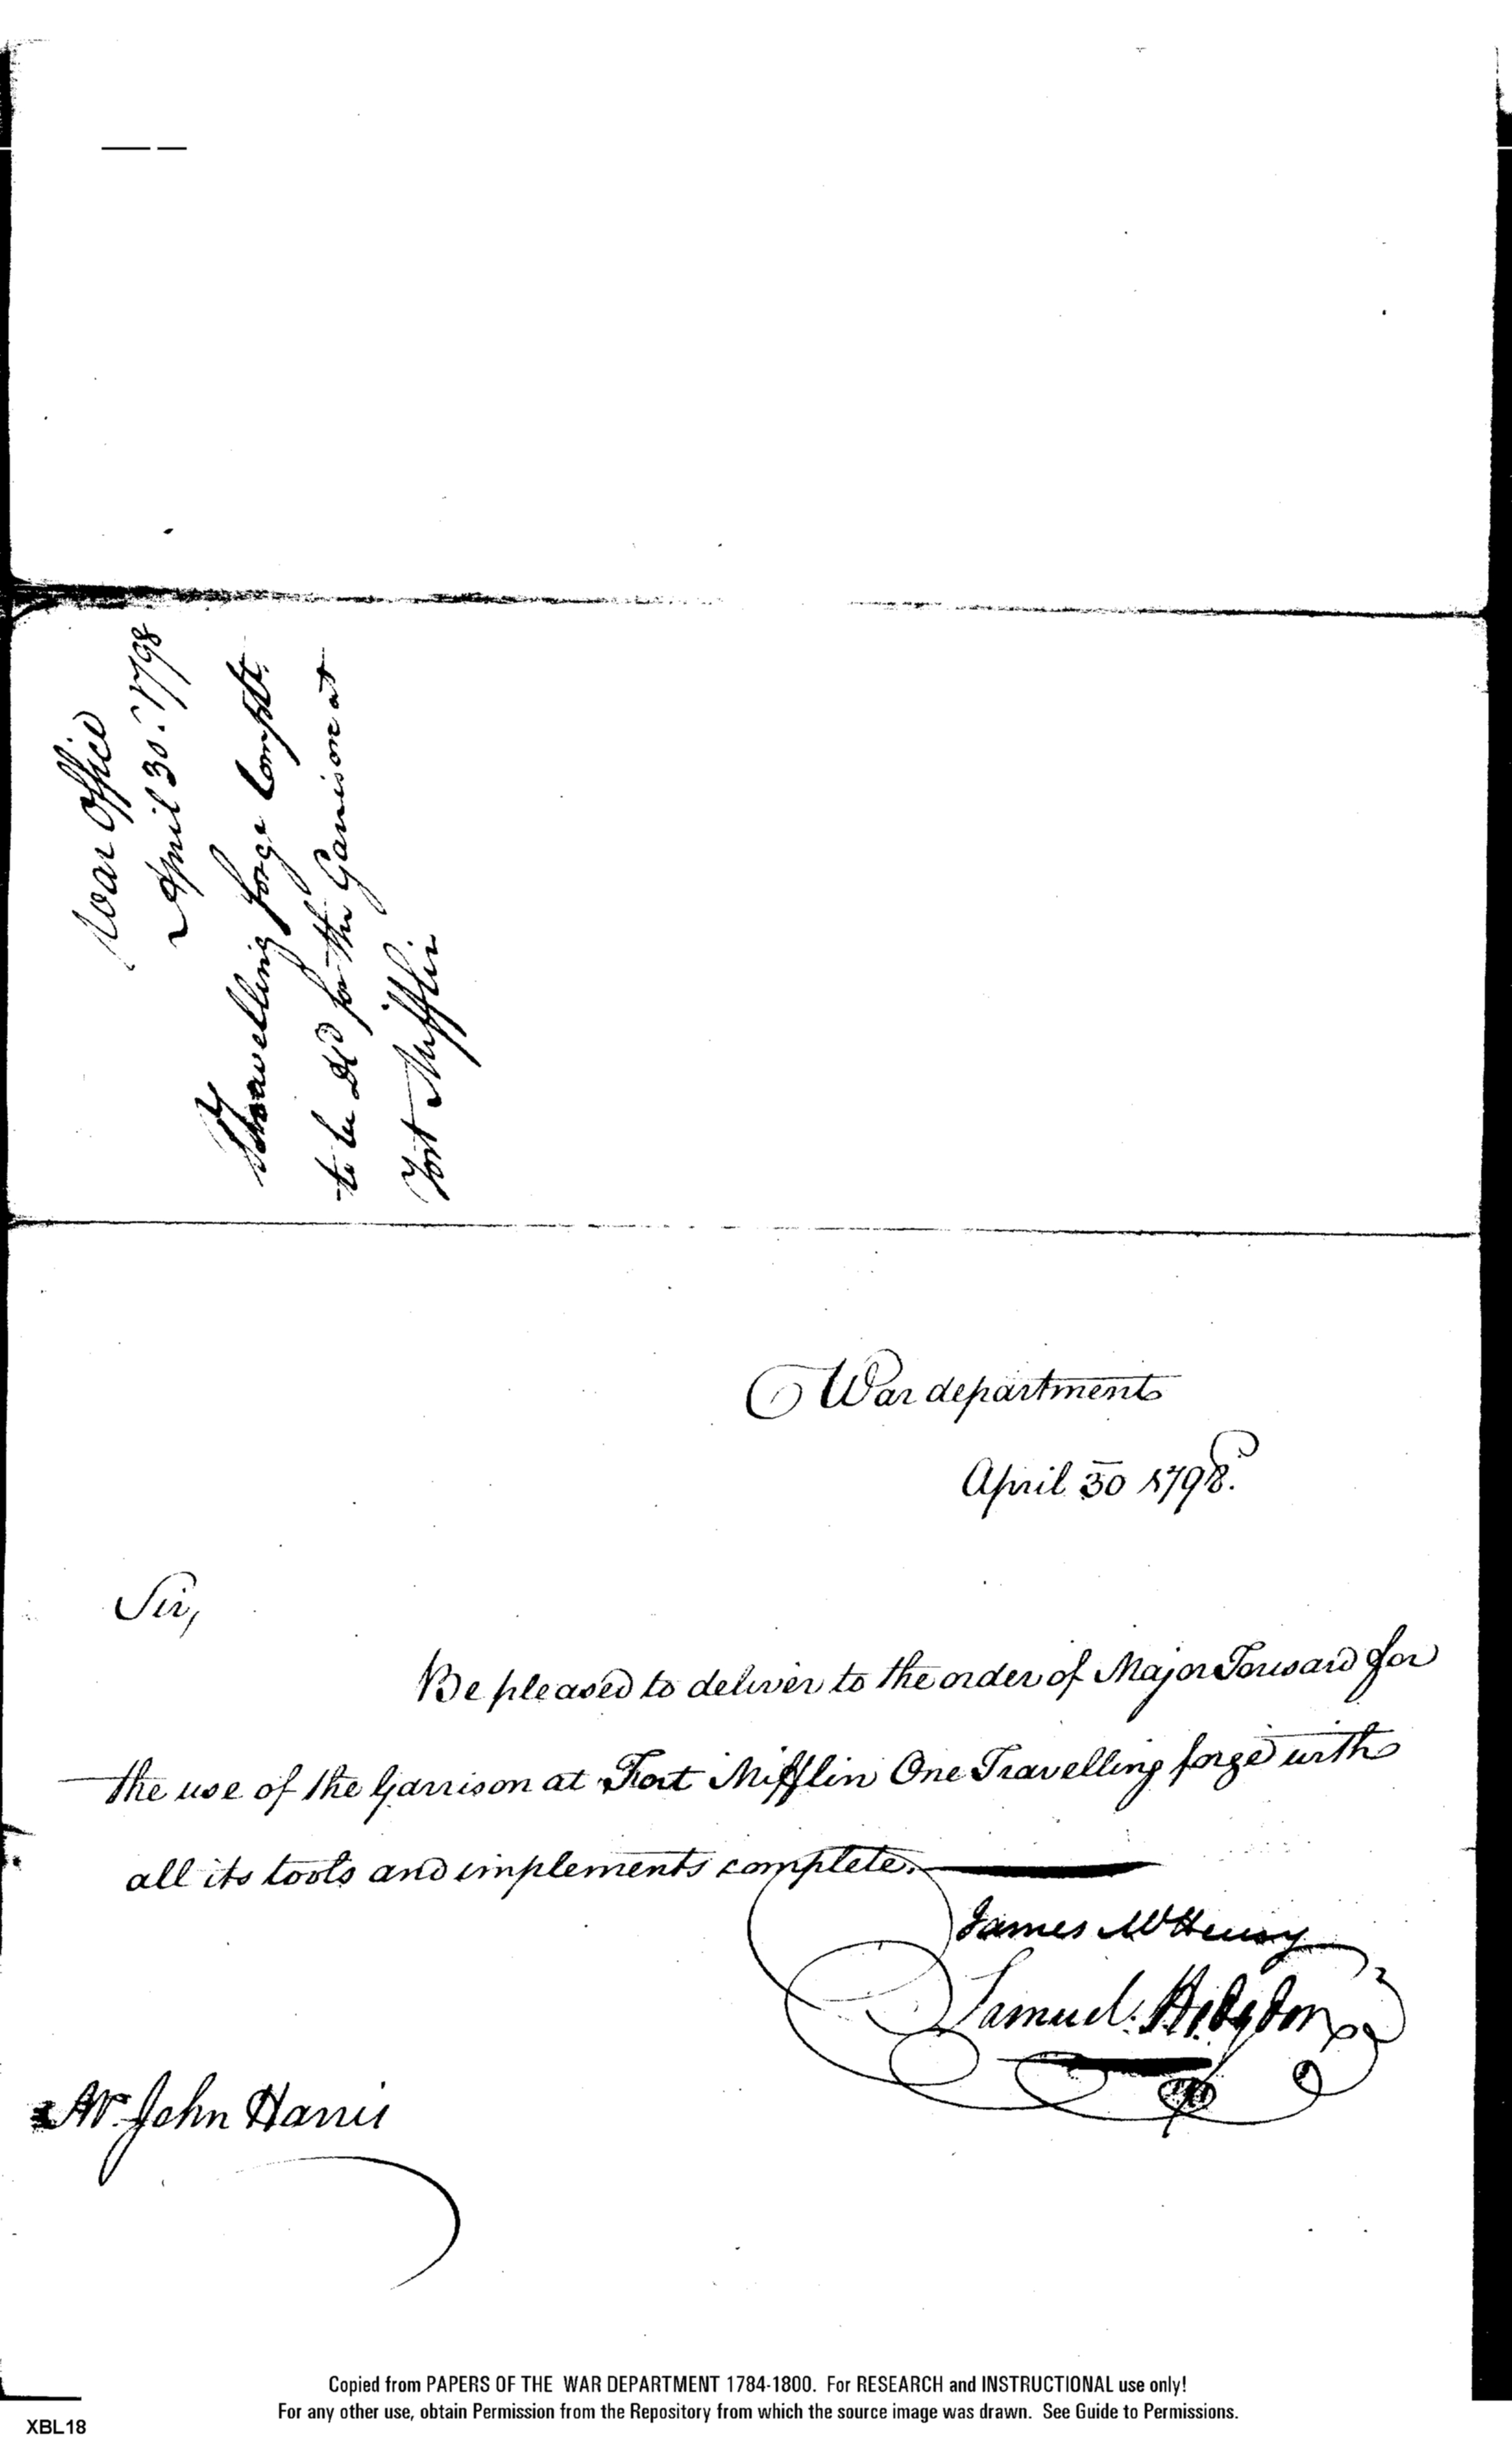 War Office
April 30. 1798
Travelling forge Complt.
to be Dd for the Garrison at
Fort Mifflin
War department
April 30 1798.
Sir,
Be pleased to deliver to the order of Major Toussard for
the use of the Garrison at Fort Mifflin One Travelling forge with
all its tools and implements complete.
James McHenry
Samuel Hodgdon
Mr. John Harris
Copied from PAPERS OF THE WAR DEPARTMENT 1784-1800. For RESEARCH and INSTRUCTIONAL use only!
For any other use, obtain Permission from the Repository from which the source image was drawn. See Guide to Permissions.
XBL18